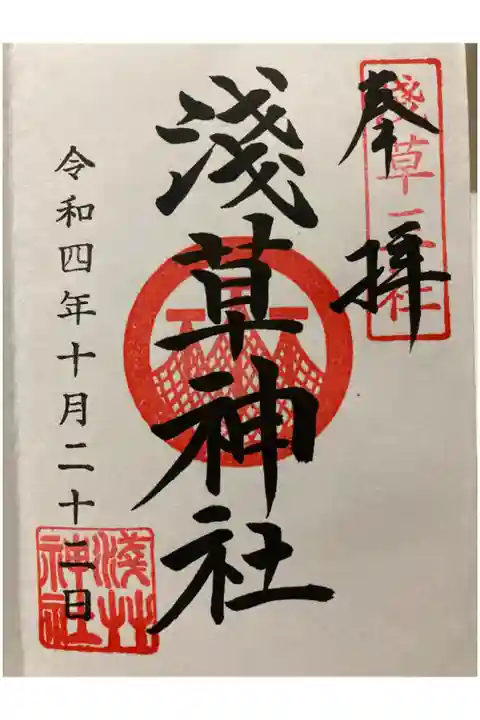 淺草三社
奉拝
淺草神社
令和四年十月二十二日
淺艸神社